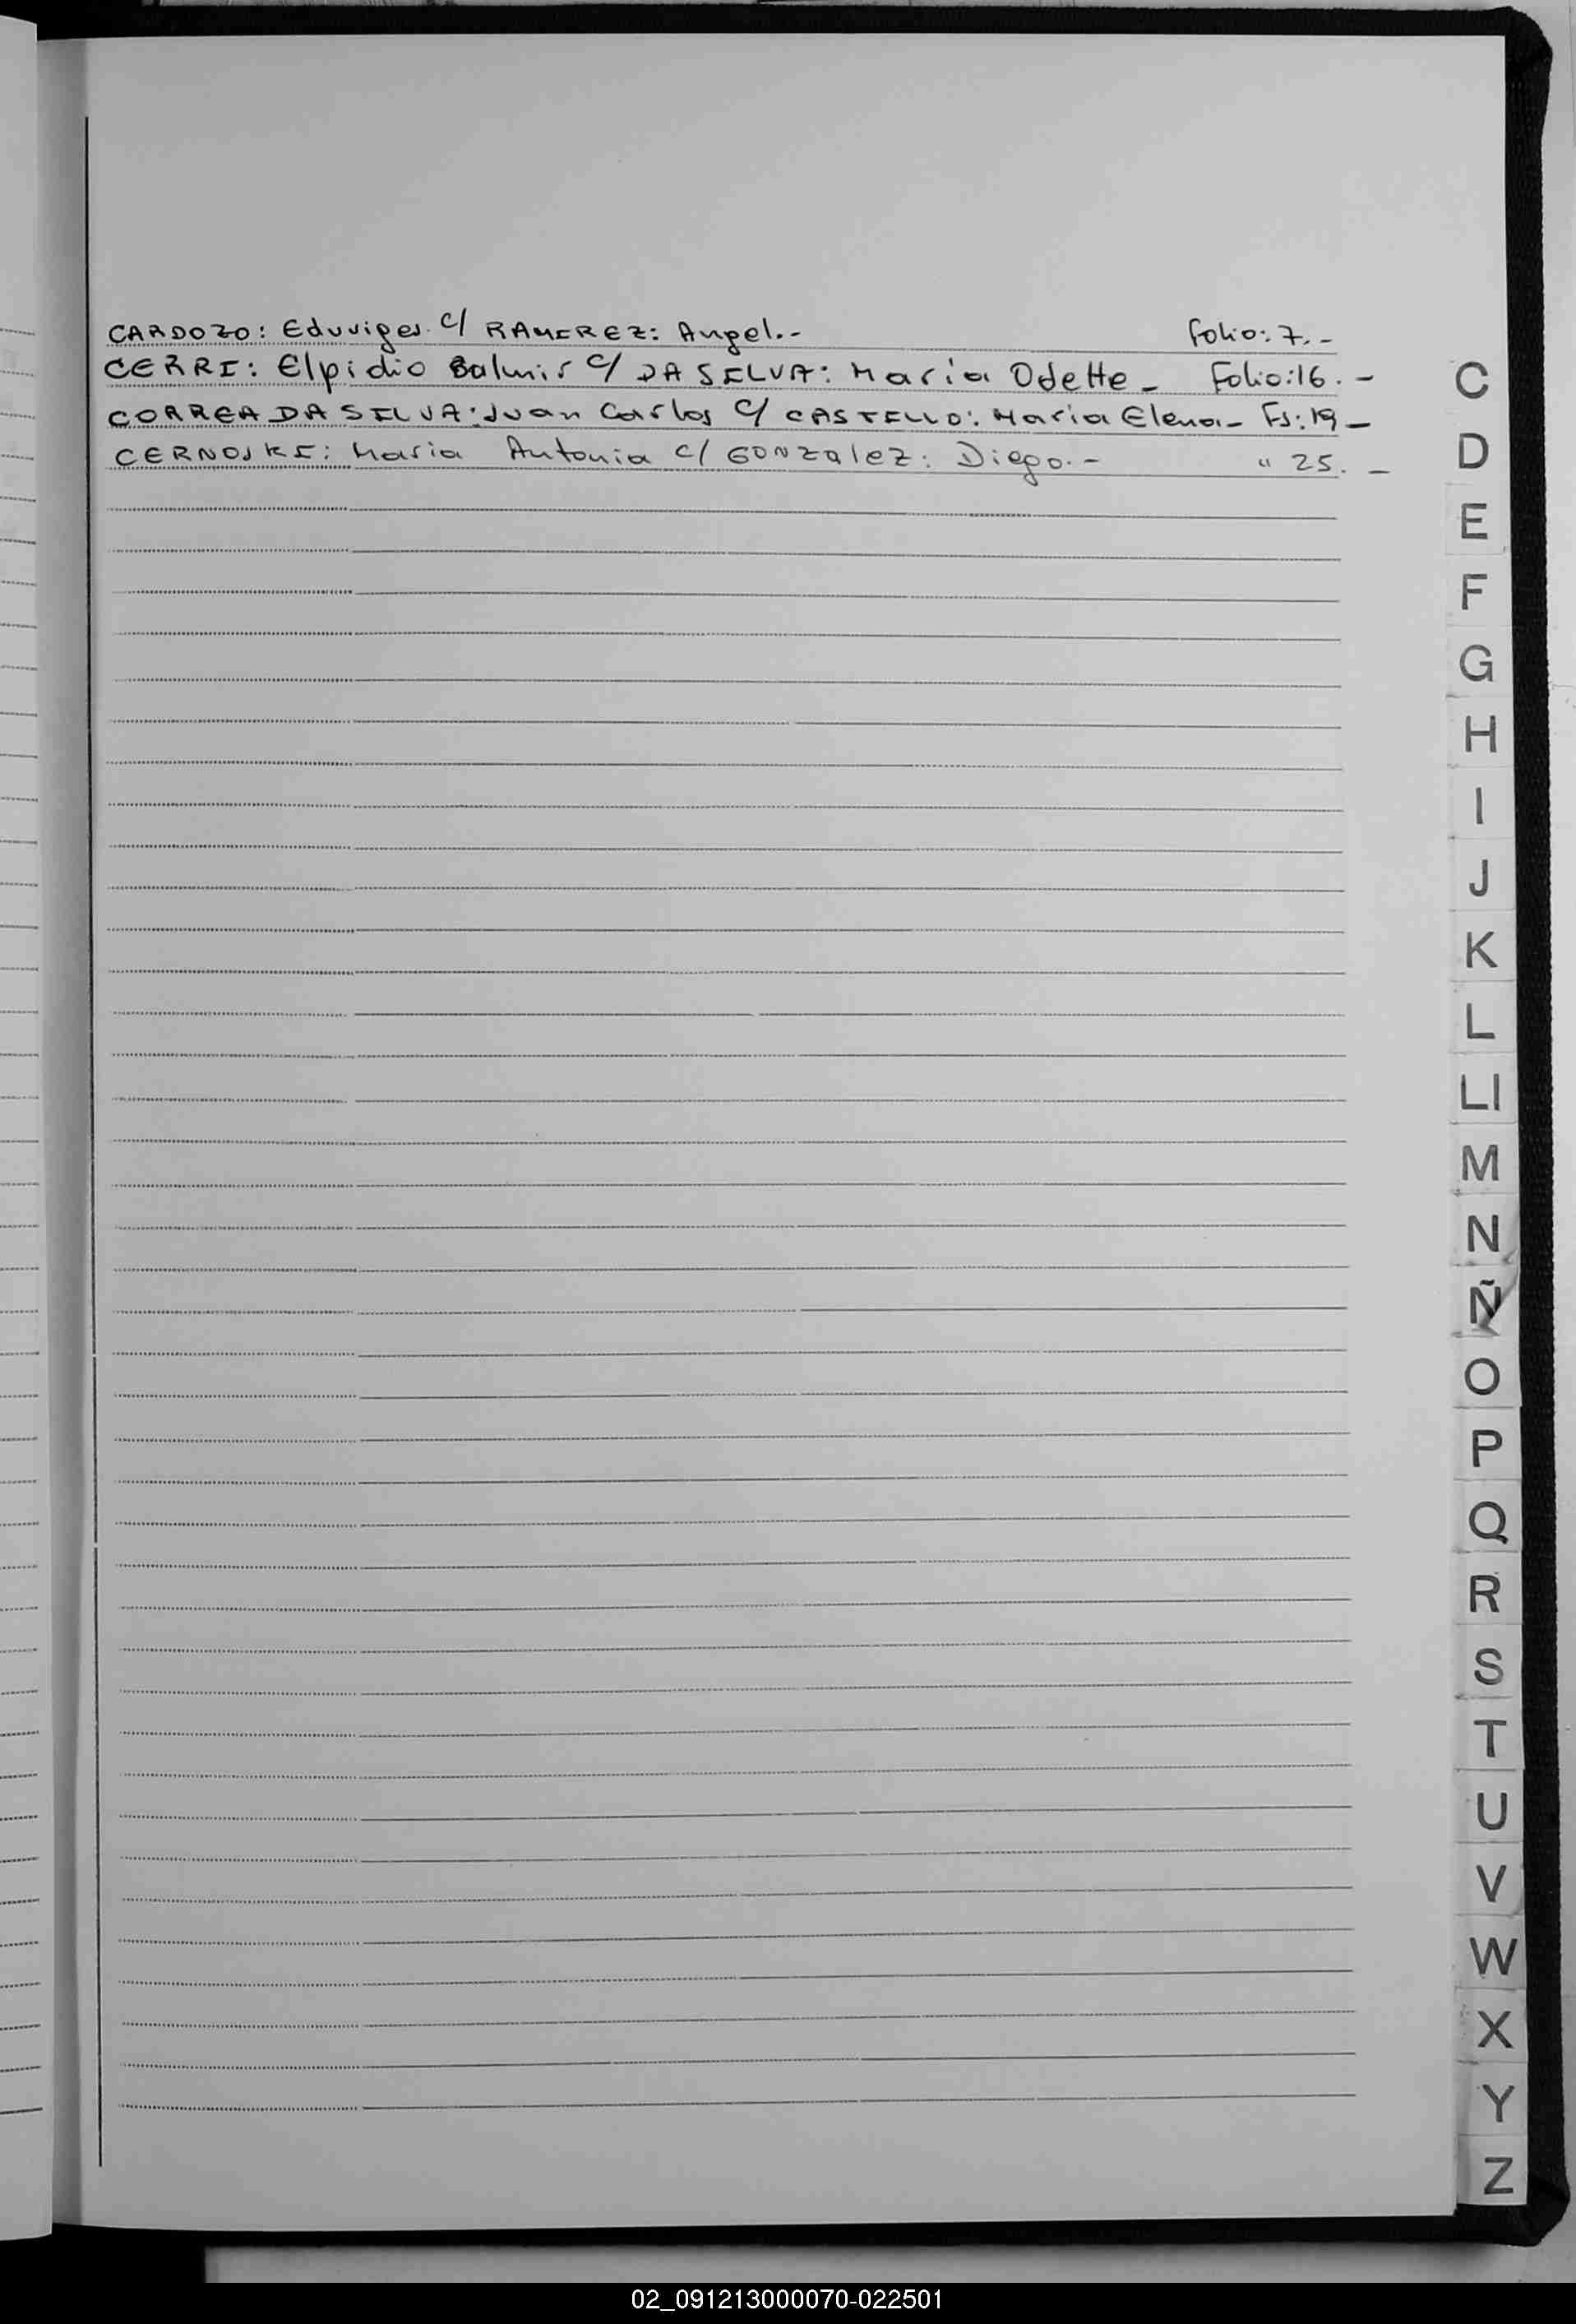 CARDOZO: Eduviges c/ RAMIREZ: Angel.- Folio: 7.-
CERRI: Elpidio Balmir c/ DA SILVA: María Odette - Folio: 16.-
CORREA DA SILVA: Juan Carlos c/ CASTELLO: María Elena - Fs: 19 -
CERNOSKI: Maria Antonia c/ GONZalEZ: Diego.- " 25. -
C
D
E
F
G
H
I
J
K
L
Ll
M
N
Ñ
O
P
Q
R
S
T
U
V
W
X
Y
Z
02_091213000070-022501